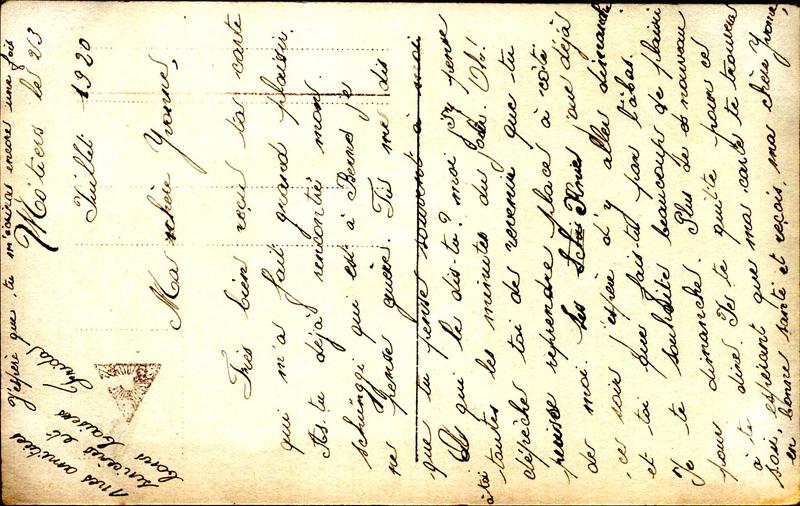 Môtiers le 23
Juillet 1920
Ma chère Yvonne,
Très bien reçu ta carte
qui m'a fait grand plaisir.
As-tu déjà rencontré mon
schüngi qui est à Berne je
ne pense guère. Tu me dis
que tu pense souvent à moi
à qui le dis-tu? moi j'y pense
à toi toutes les minutes du jour. Oh!
dépêcher toi de revenir que tu
puisse reprendre place à côté
de moi. Les ai déjà
ce soir j'espère d'y aller dimanche
et toi que fais-tu par là bas.
Je te souhaite beaucoup de plaisir
pour dimanche. Plus de nouveau
à te dire. Je te quitte pour ce
soir, espérant que ma carte te trouvera
en bonne santé et reçois, ma chère Yvonne,
mes amitiés
sincères et
bons baisers
J'espère que tu m'écriras encore une fois